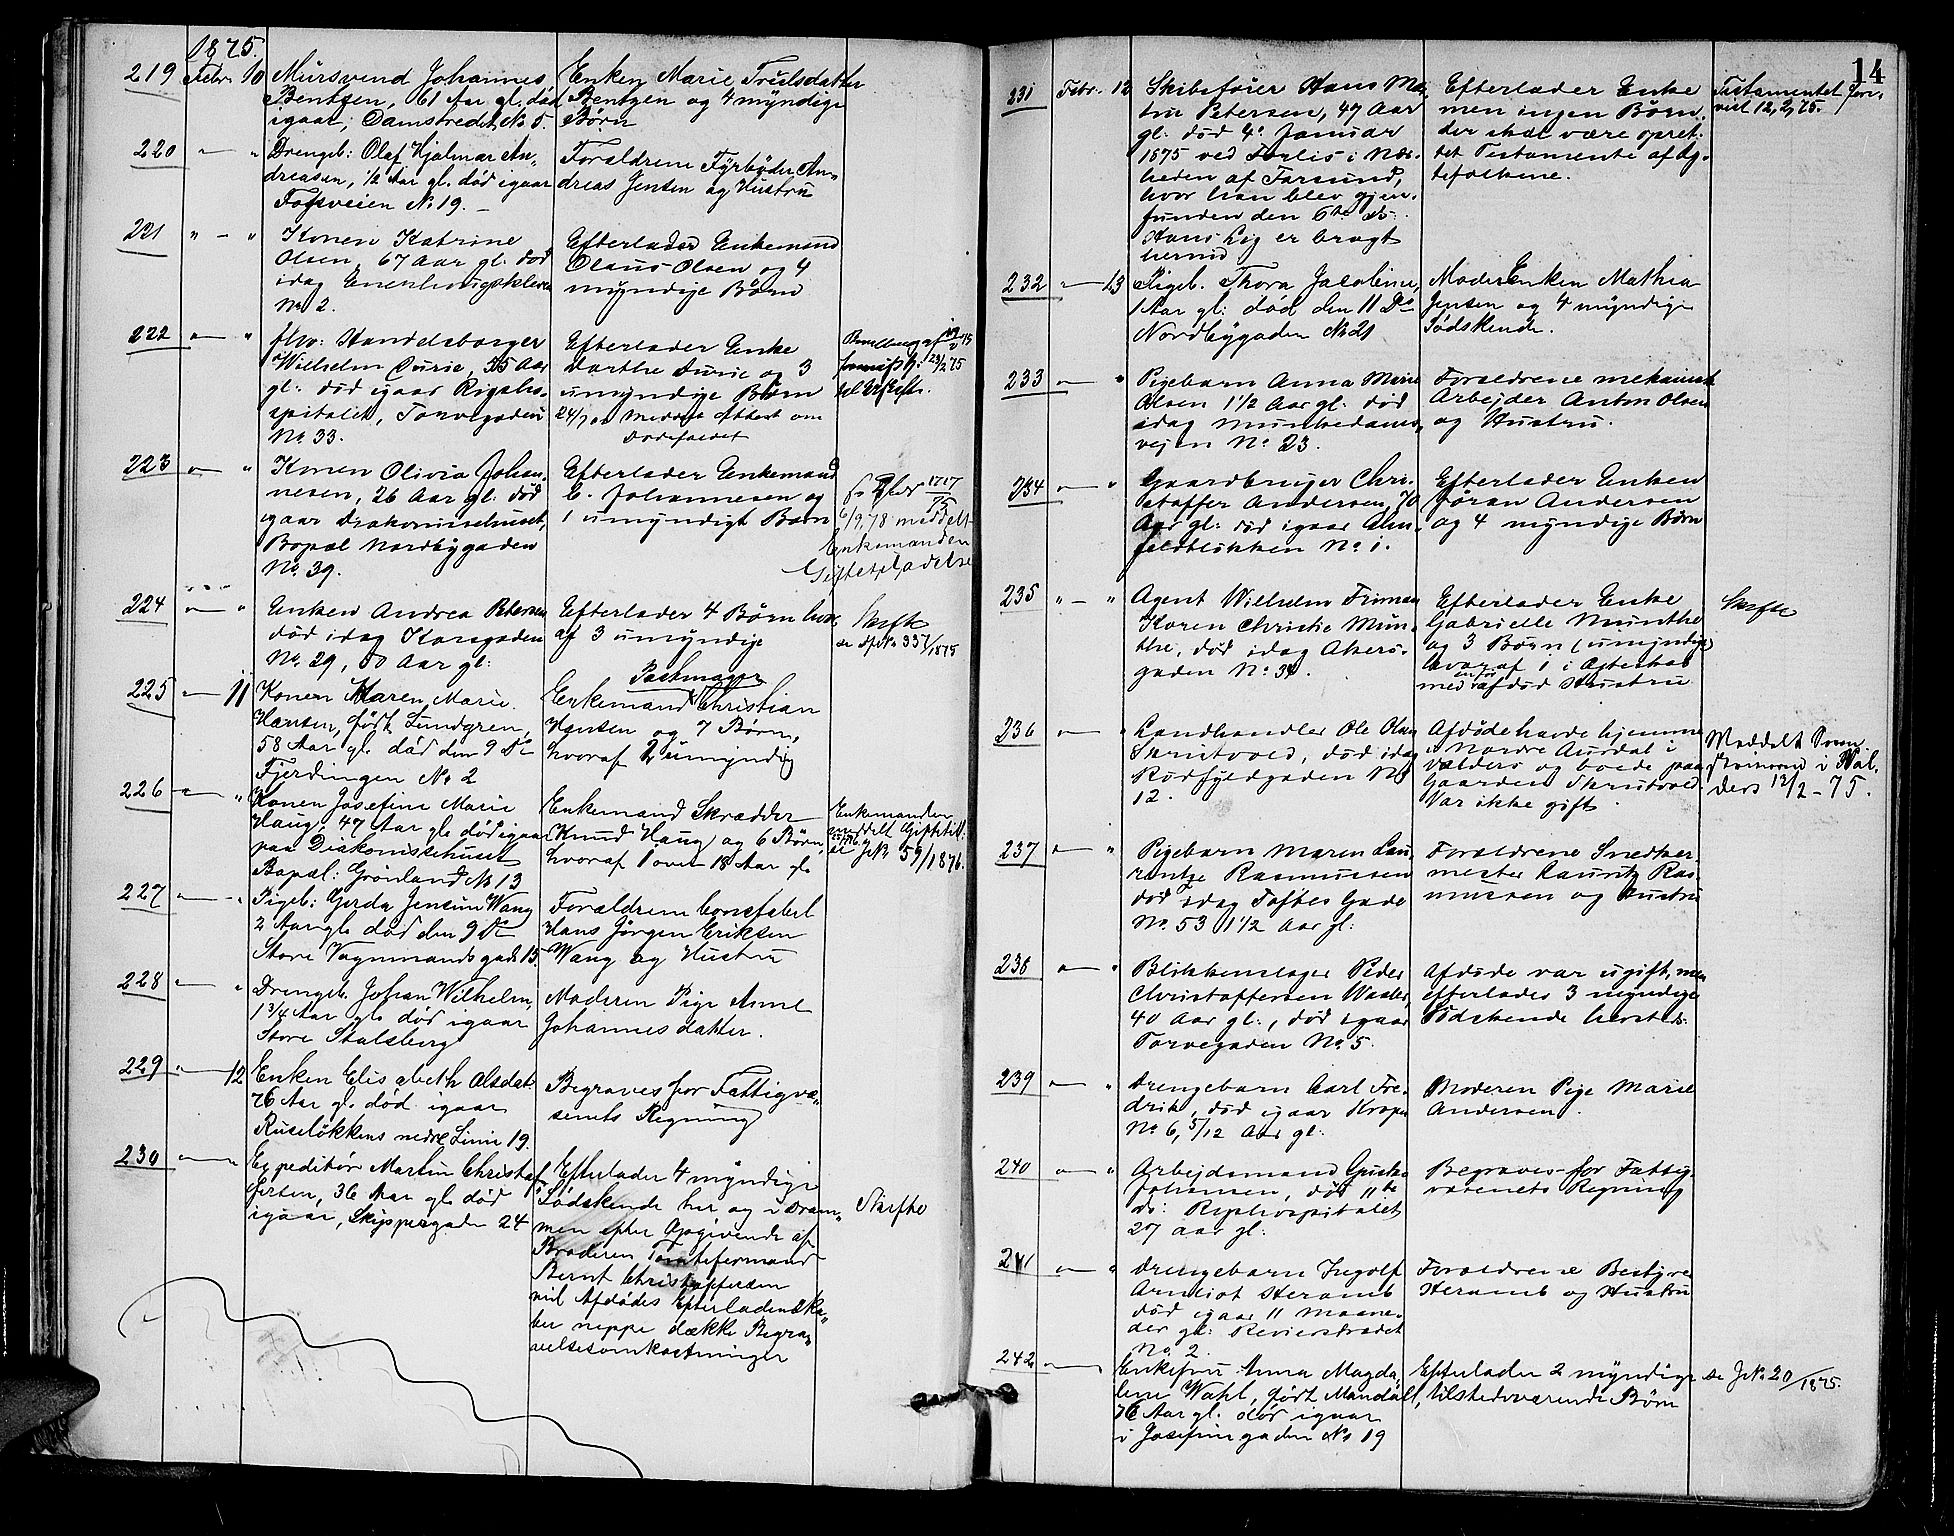 1875.
219 Febr. 10 Mursvend Johannes
Bentzen, 61 Aar gl. død
igaar, Damstredet No 5.
Enken Marie Trulsdatter
Bentzen og 4 myndige
Børn
220 — " Drengeb: Olaf Hjalmar An-
dreasen, 1/2 Aar gl. død igaar
No 19. —
Forældrene Fyrbøder An-
dreas Jensen og Hustru
221 " — " Konen Katrine
Olsen, 67 Aar gl. død
idag
No 2.
Efterlader Enkemand
Olaus Olsen og 4
myndige Børn
222 — " fhv: Handelsborger
Wilhelm Durie, 55 Aar
gl. død igaar Rigsho-
spitalet, Torvegaden
No 33.
Efterlader Enke
Dorthe Durie og 3
umyndige Børn
meddelt Attest om
Dødsfaldet
223 — " Konen Olivia Johan-
nesen, 26 Aar gl. død
igaar Diakonissehuset,
Bopæl Nordbygaden
No. 39.
Efterlader Enkemand
C. Johannesen og
1 umyndigt Barn
6/9 78 meddelt
Enkemanden
Giftetilladelse
224 — " Enken Andrea Petersen
død idag Korsgaden
No. 29, 50 Aar gl:
Efterlader 4 Børn hvor-
af 3 umyndige
Skifte
337/1875
225 — 11 Konen Maren Marie
Hansen, født Lundgren,
58 Aar gl. død den 9 Ds
Fjerdingen No 2
Pastmager
Enkemand Christian
Hansen og 7 Børn,
hvoraf 2 umyndig
226 — " Konen Josefine Marie
Haug, 47 Aar gl. død igaar
paa Diakonissehuset
Bopæl: Grønland No 13
Enkemand Skrædder
Knud Haug og 6 Børn,
hvoraf 1 over 18 Aar gl.
Enkemanden
meddelt Giftetill.
se JNo 59/1876.
227 — " Pigeb: Gerda Jensine Wang
2 Aar gl. død den 9 Ds
Store Vognmandsgade 15.
Forældrene Constabel
Hans Jørgen Eriksen
Wang og Hustru
228 — " Drengeb. Johan Wilhelm,
1 3/4 Aar gl. død igaar
Store Stalsberg
Moderen Pige Anne
Johannesdatter.
229 — 12 Enken Elisabeth Olsdat.
76 Aar gl. død igaar
Ruseløkkens nedre Linie 19.
Begraves for Fattigvæ-
senets Regning
230 — Expeditør Martin Christof-
fersen, 36 Aar gl. død
igaar, Skippergaden 24
Efterlader 4 myndige
Sødskende her og i Dram-
men efter Opgivende af
Broderen Tomteformand
Bernt Christoffersen
vil Afdødes Efterladenska-
ber neppe dække Begra-
velsesomkostninger
Skifte
14
231 Febr. 12 Skibsfører Hans Mar-
tin Petersen, 47 Aar
gl. død 4. Januar
1875 ved Forlis i Nær-
heden af Farsund,
hvor han blev gjen-
funden den 6te ds.
Hans Lig er bragt
herind
Efterlader Enke
men ingen Børn.
der skal være opret-
tet Testamente af Æg-
tefolkene.
Testamentet fore-
vist 12,2,75.
232 — 13 Pigeb. Thora Jacobine,
1 Aar gl. død den 11 Ds
Nordbygaden No 21
Moder Enken Mathea
Jensen og 4 myndige
Sødskende.
233 — " Pigebarn Anna Marie
Olsen 1 1/2 Aar gl. død
idag Munkedams-
vejen No. 23.
Forældrene mekanisk
Arbejder Anton Olsen
og Hustru.
234 — " Gaardbruger Chri-
stoffer Andersen, 70
Aar gl. død igaar
No. 1.
Efterlader Enken
Jøran Andersen
og 4 myndige Børn
235 " — " Agent Wilhelm Friman
Koren Christie Mun-
the, død idag Akers-
gaden No. 34.
Efterlader Enke
Gabrielle Munthe
og 3 Børn (umyndige)
hvoraf 1 i Ægteskab
med afdød Hustru.
Skifte
236 — " Landhandler Ole Olsen
Skrutvold, død idag
Rødfyldgaden No
12.
Afdøde havde hjemme
i Nordre Aurdal i
Valders og boede paa
Gaarden Skrutvold.
Var ikke gift.
Meddelt Soren-
skriveren i Val-
ders 13/2 - 75.
237 — " Pigebarn Maren Lau-
rentze Rasmussen
død idag Toftes Gade
No. 53 1 1/2 Aar gl:
Forældrene Snedker-
mester Lauritz Ras-
mussen og Hustru
238 — " Blikkenslager Peder
Christoffersen Waaler,
40 Aar gl., død igaar
Torvegaden No. 5.
Afdøde var ugift, men
efterlader 3 myndige
Sødskende hersteds.
239 — " Drengebarn Carl Fre-
drik, død igaar
No 6, 5/12 Aar gl:
Moderen Pige Marie
Andersen.
240 — " Arbejdsmand Gustav
Johansen, død 11te
ds: Rigshospitalet
27 aar gl:
Begraves for Fattig-
væsenets Regning
241 — " Drengebarn Ingolf
Arnliot Steramb
død igaar 11 Maane-
der gl: Revierstrædet
No. 2.
Forældrene Bestyrer
Steramb og Hustru
242 — Enkefru Anna Magda-
lene Wahl, født Mandall,
76 Aar gl. død igaar
i Josefinegaden No 19
Efterlader 2 myndige
tilstedeværende Børn
se JNo 20/1875.